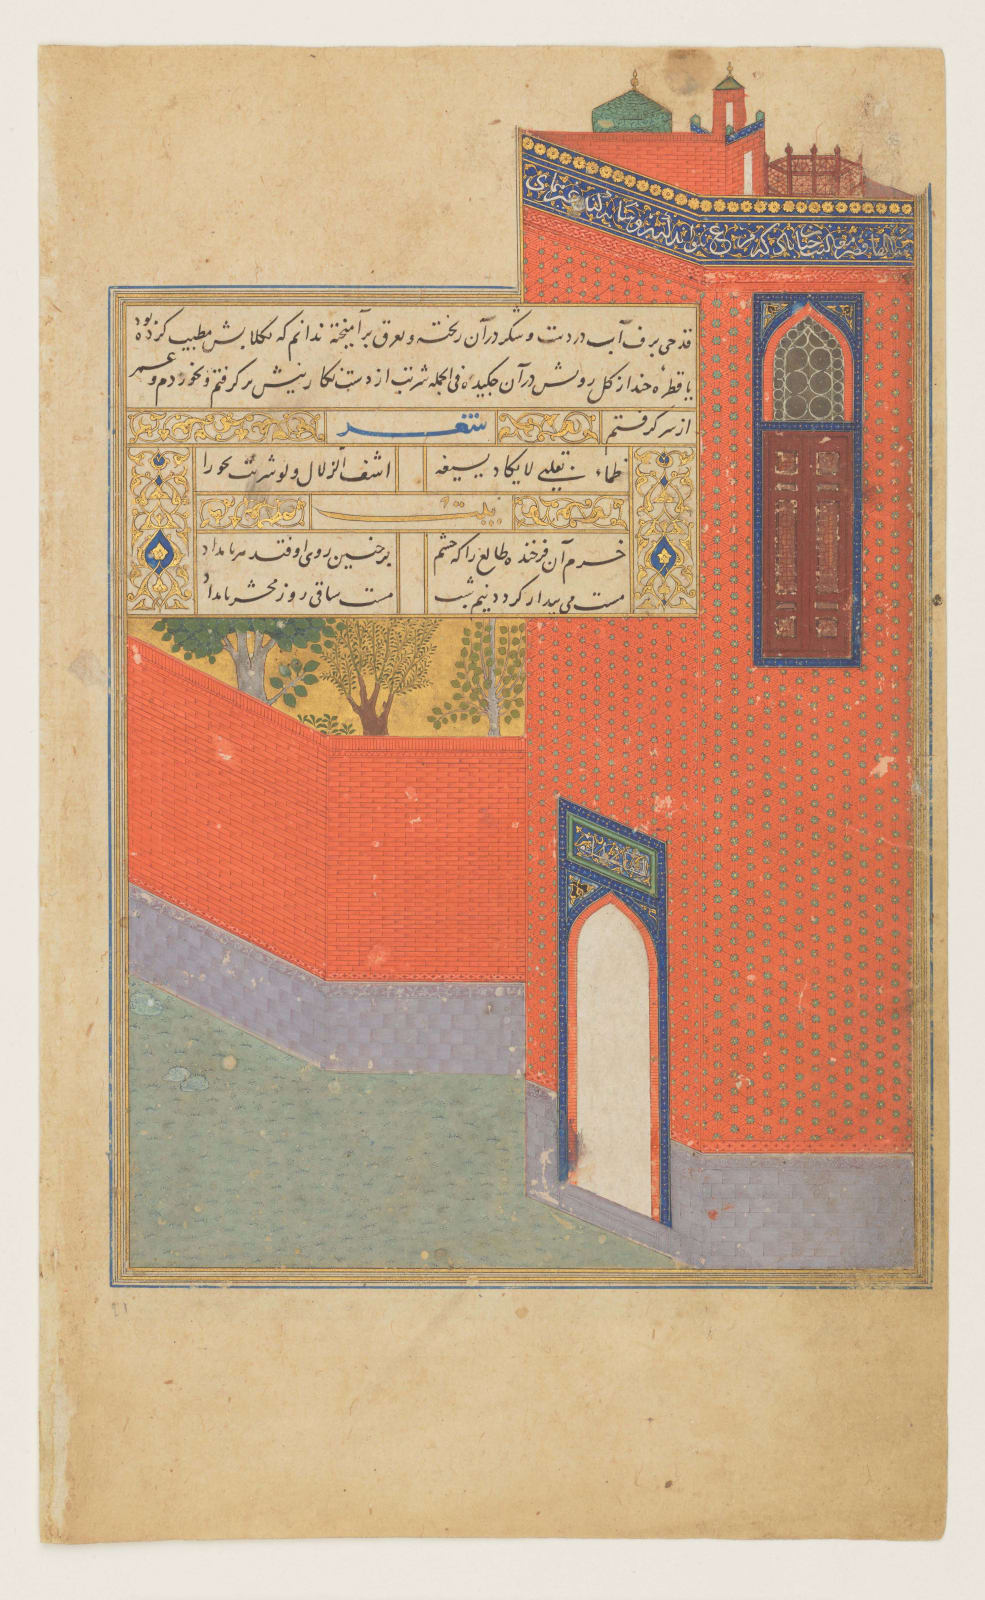 قدحی برف آب در دست و شکر در آن ریخته و بعرق برآمیخته ندانم که بگلابش مطیب کرده بود
یا قطرهٔ چند از گل رویش در آن چکیده فی الجمله شربت از دست نگارینش برگرفتم و بخوردم و عمر
از سر گرفتم
شعر
ظماء بقلبی لا یکاد یسیغه
اشف الزلال ولو شربت بحورا
بیت
خرم آن فرخنده طالع را که چشم
بر چنین روی اوفتد هر بامداد
مست می بیدار گردد نیم شب
مست ساقی روز محشر بامداد